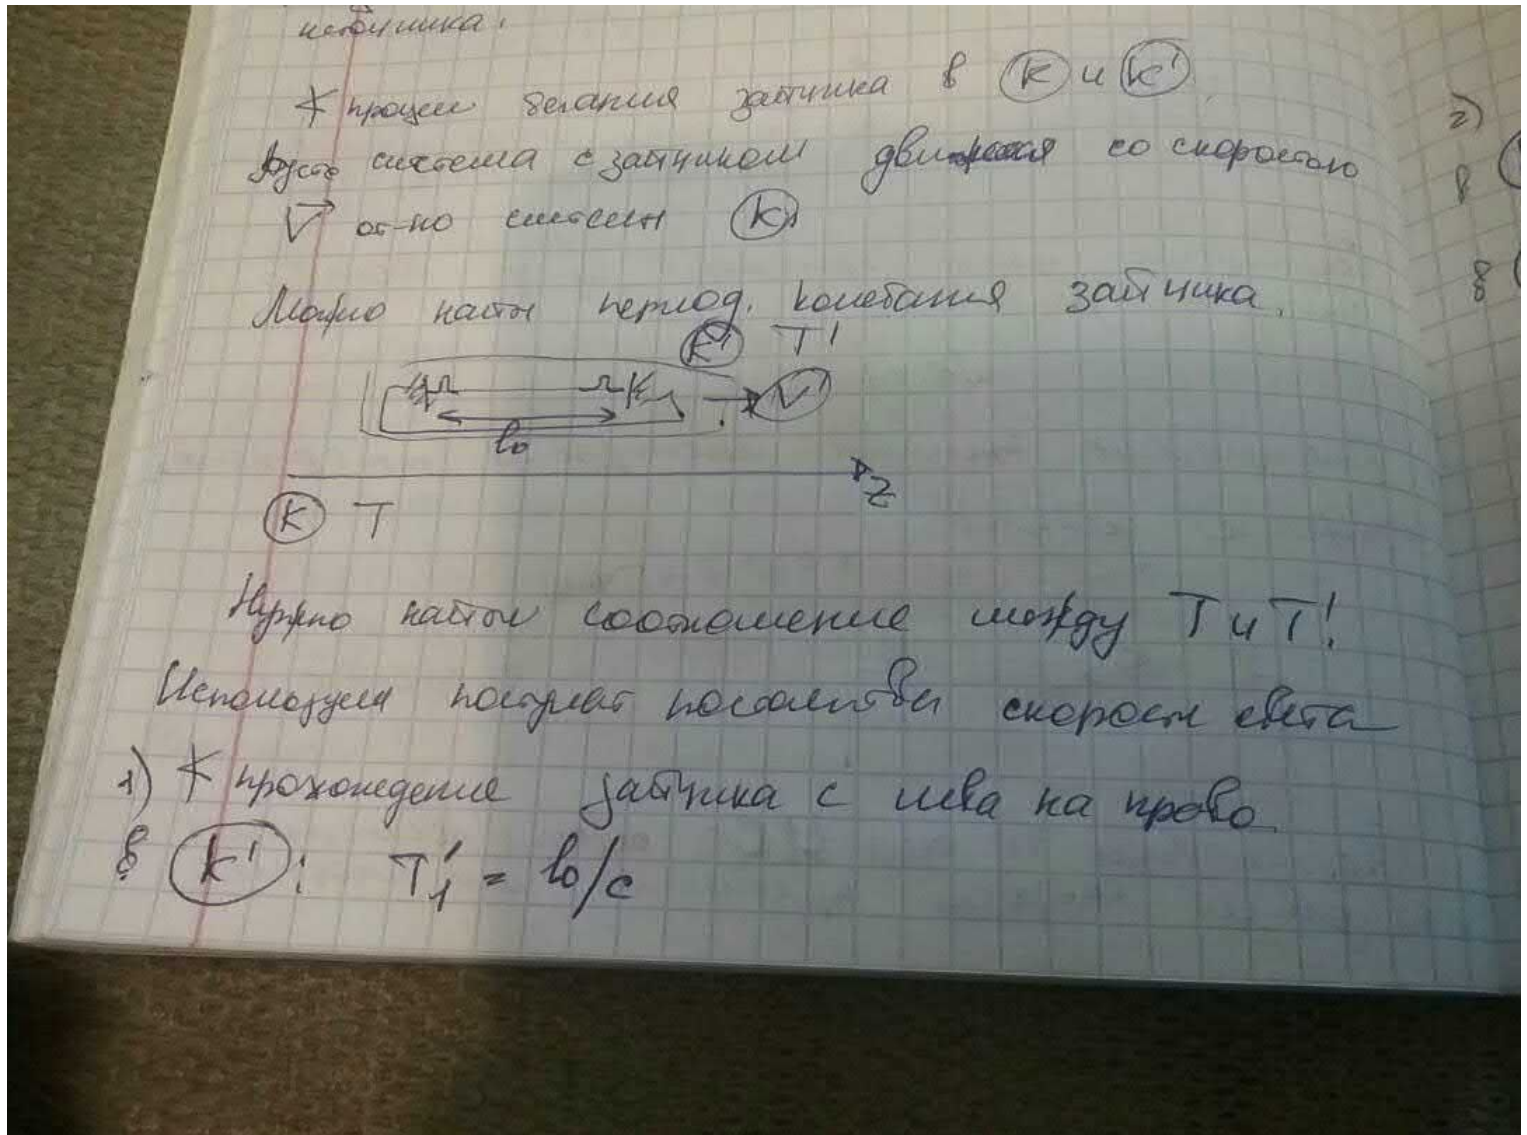 источника.
∀ процесс бегания зайчика в K и K'
Пусть система с зайчиком движется со скоростью
V от-но системы K
Можно найти период. колебания зайчика.
K' T'
V
l₀
z
K T
Нужно найти соотношение между T и T'.
Используем постулат скорости света
1) ∀ прохождение зайчика с лева на право
в K': T₁' = l₀/c
2)
в
в